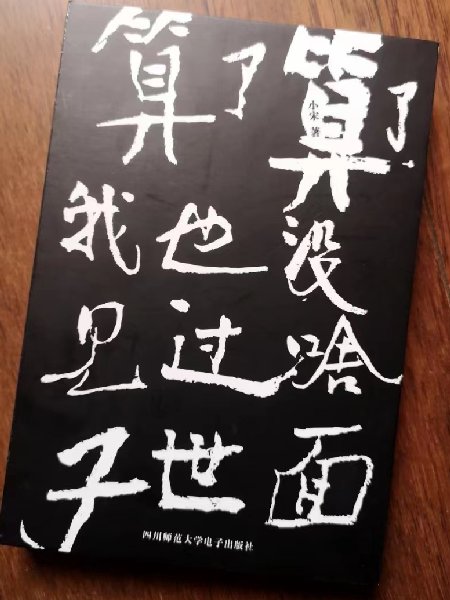 算了算了
我也没
見过啥
子世面
小宋 著
四川师范大学电子出版社